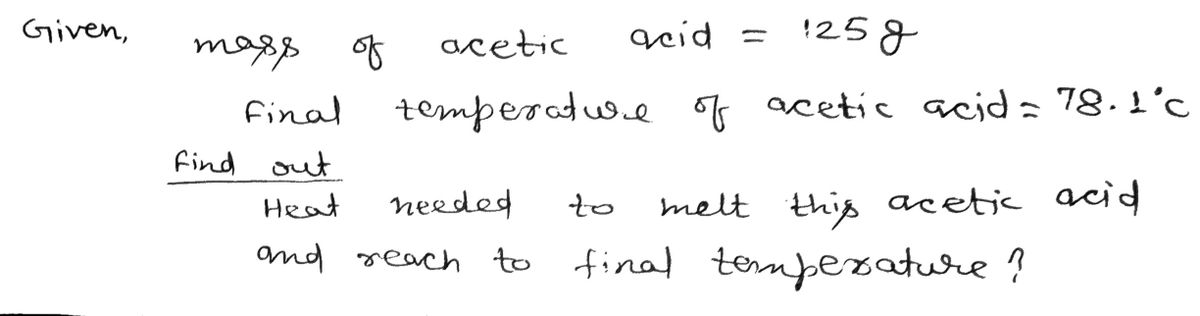 Given, mass of acetic acid = 125 g
Final temperature of acetic acid = 78.1°c
Find out
Heat needed to melt this acetic acid
and reach to final temperature ?